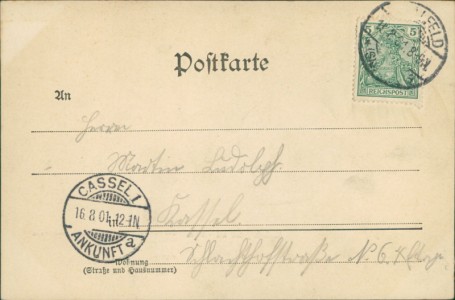 5
REICHSPOST
Postkarte
An
Herrn
Martin Ludolph.
CASSEL 1
16.8.01. 12-1N
ANKUNFT a
Kassel.
Schlachthofstraße No 6.
Wohnung
(Straße und Hausnummer)